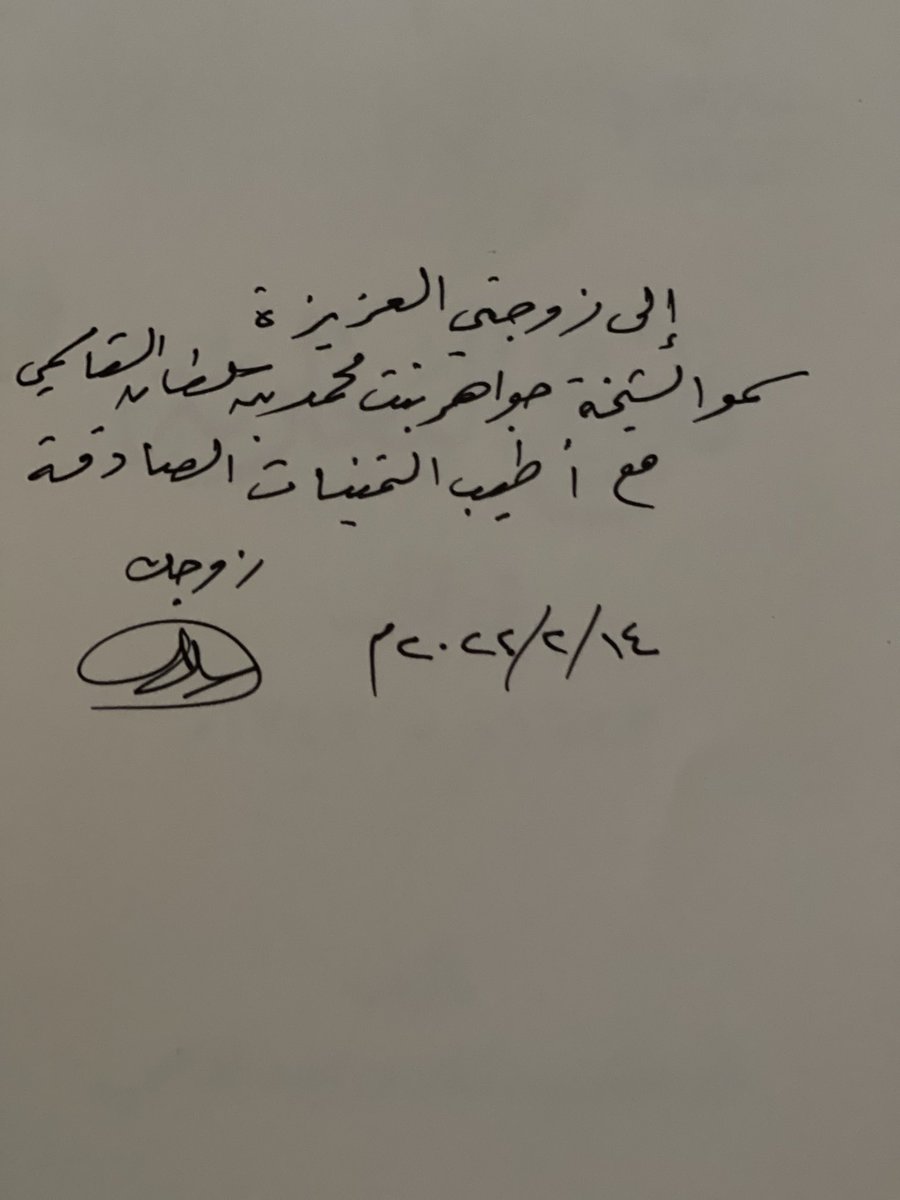 إلى زوجتي العزيزة
سمو الشيخة جواهر بنت محمد بن سلطان القاسمي
مع أطيب التمنيات الصادقة
زوجك
١٤/٢/٢٠٢٢م